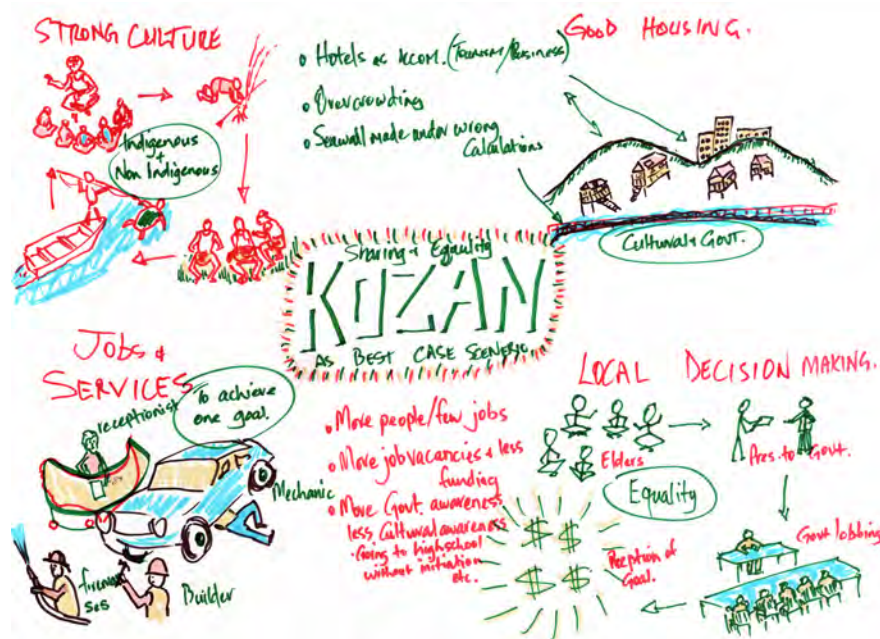 STRONG CULTURE
Indigenous
+
Non Indigenous
• Hotels as Accom. (Tourism/Business)
• Overcrowding
• Seawall made under wrong
Calculations
GOOD HOUSING.
Cultural & Govt.
Sharing & Equality
KOZAN
AS BEST CASE SCENERIO
JOBS &
SERVICES
To achieve
one goal.
receptionist
Mechanic
fireman
SES
Builder
• More people/few jobs
• More job vacancies & less
funding
• More Govt. awareness
less Cultural awareness
• Going to highschool
without initiation
etc.
LOCAL DECISION MAKING.
Elders
Pres. to Govt.
Equality
Govt lobbing
$ $
$ $
of
Goal.